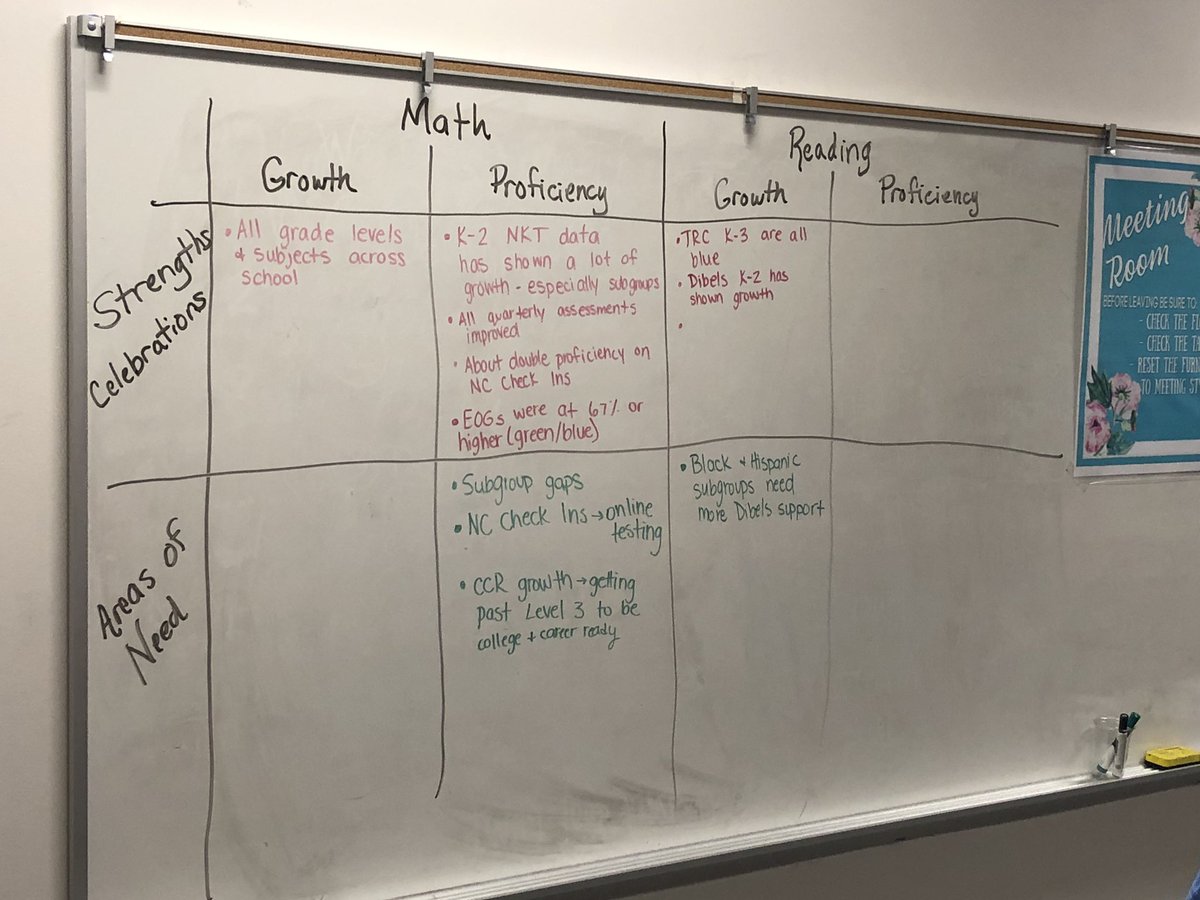 Math
Reading
Growth
Proficiency
Growth
Proficiency
Strengths
Celebrations
• All grade levels
& subjects across
school
• K-2 NKT data
has shown a lot of
growth - especially subgroups
• All quarterly assessments
improved
• About double proficiency on
NC Check Ins
• EOGs were at 67% or
higher (green/blue)
• TRC K-3 are all
blue
• Dibels K-2 has
shown growth
•
Areas of
Need
• Subgroup gaps
• NC Check Ins → online
testing
• CCR growth → getting
past Level 3 to be
college + career ready
• Black + Hispanic
subgroups need
more Dibels support
Meeting
Room
BEFORE LEAVING BE SURE TO:
- CHECK THE
- CHECK THE
- RESET THE
TO MEETING